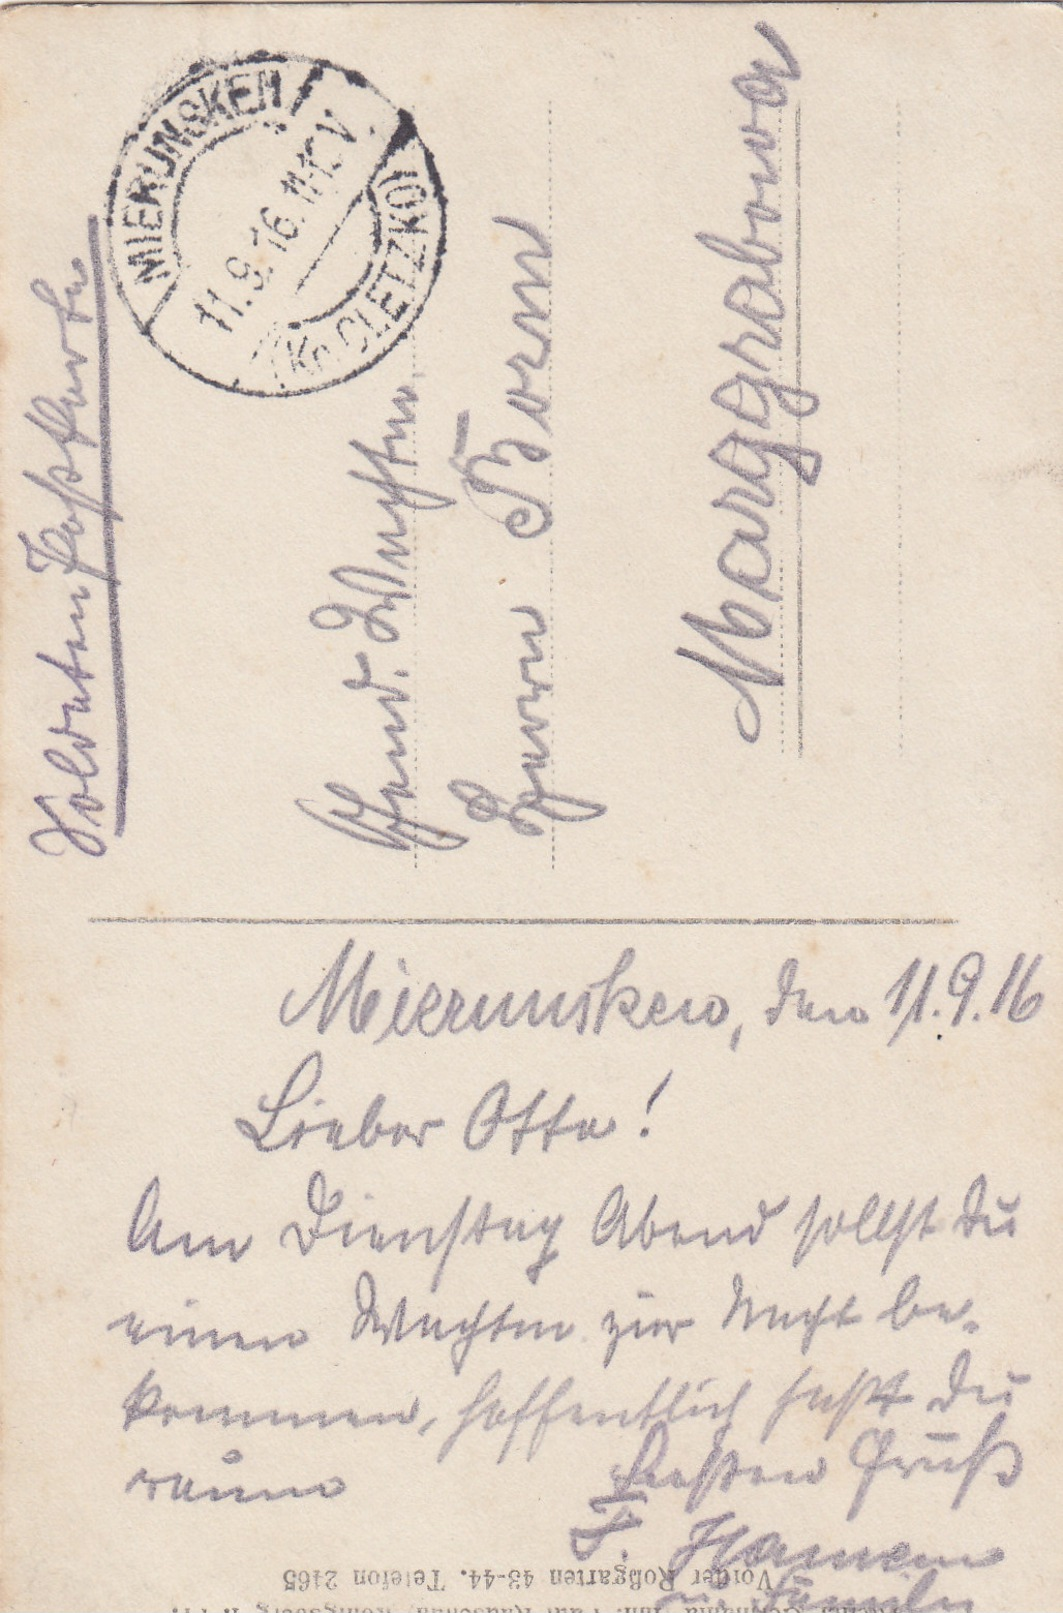 Soldaten Postkarte
MIERUNSKEN
11.9.16. 11-12V.
(Kr. OLETZKO)
Gend. Wachtm.
Herrn Born
Marggrabowa
Mierunsken, den 11.9.16
Lieber Otto!
Am Dienstag Abend sollst Du
einen Wachtm. zur Nacht be-
kommen, hoffentlich hast Du
raum
Besten Gruß
F. Hamann
u. Familie
Vorder Roßgarten 43-44. Telefon 2165